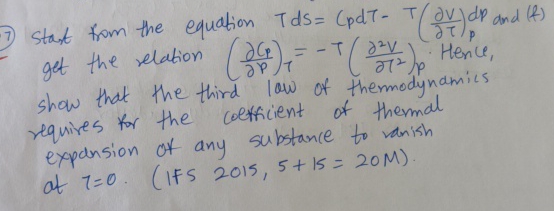 7) Start from the equation Tds = CpdT - T(∂V/∂T)p dp and
get the relation (∂Cp/∂P)T = -T(∂²V/∂T²)p. Hence,
show that the third law of thermodynamics
requires for the coefficient of thermal
expansion of any substance to vanish
at T=0. (IFS 2015, 5+15=20M).